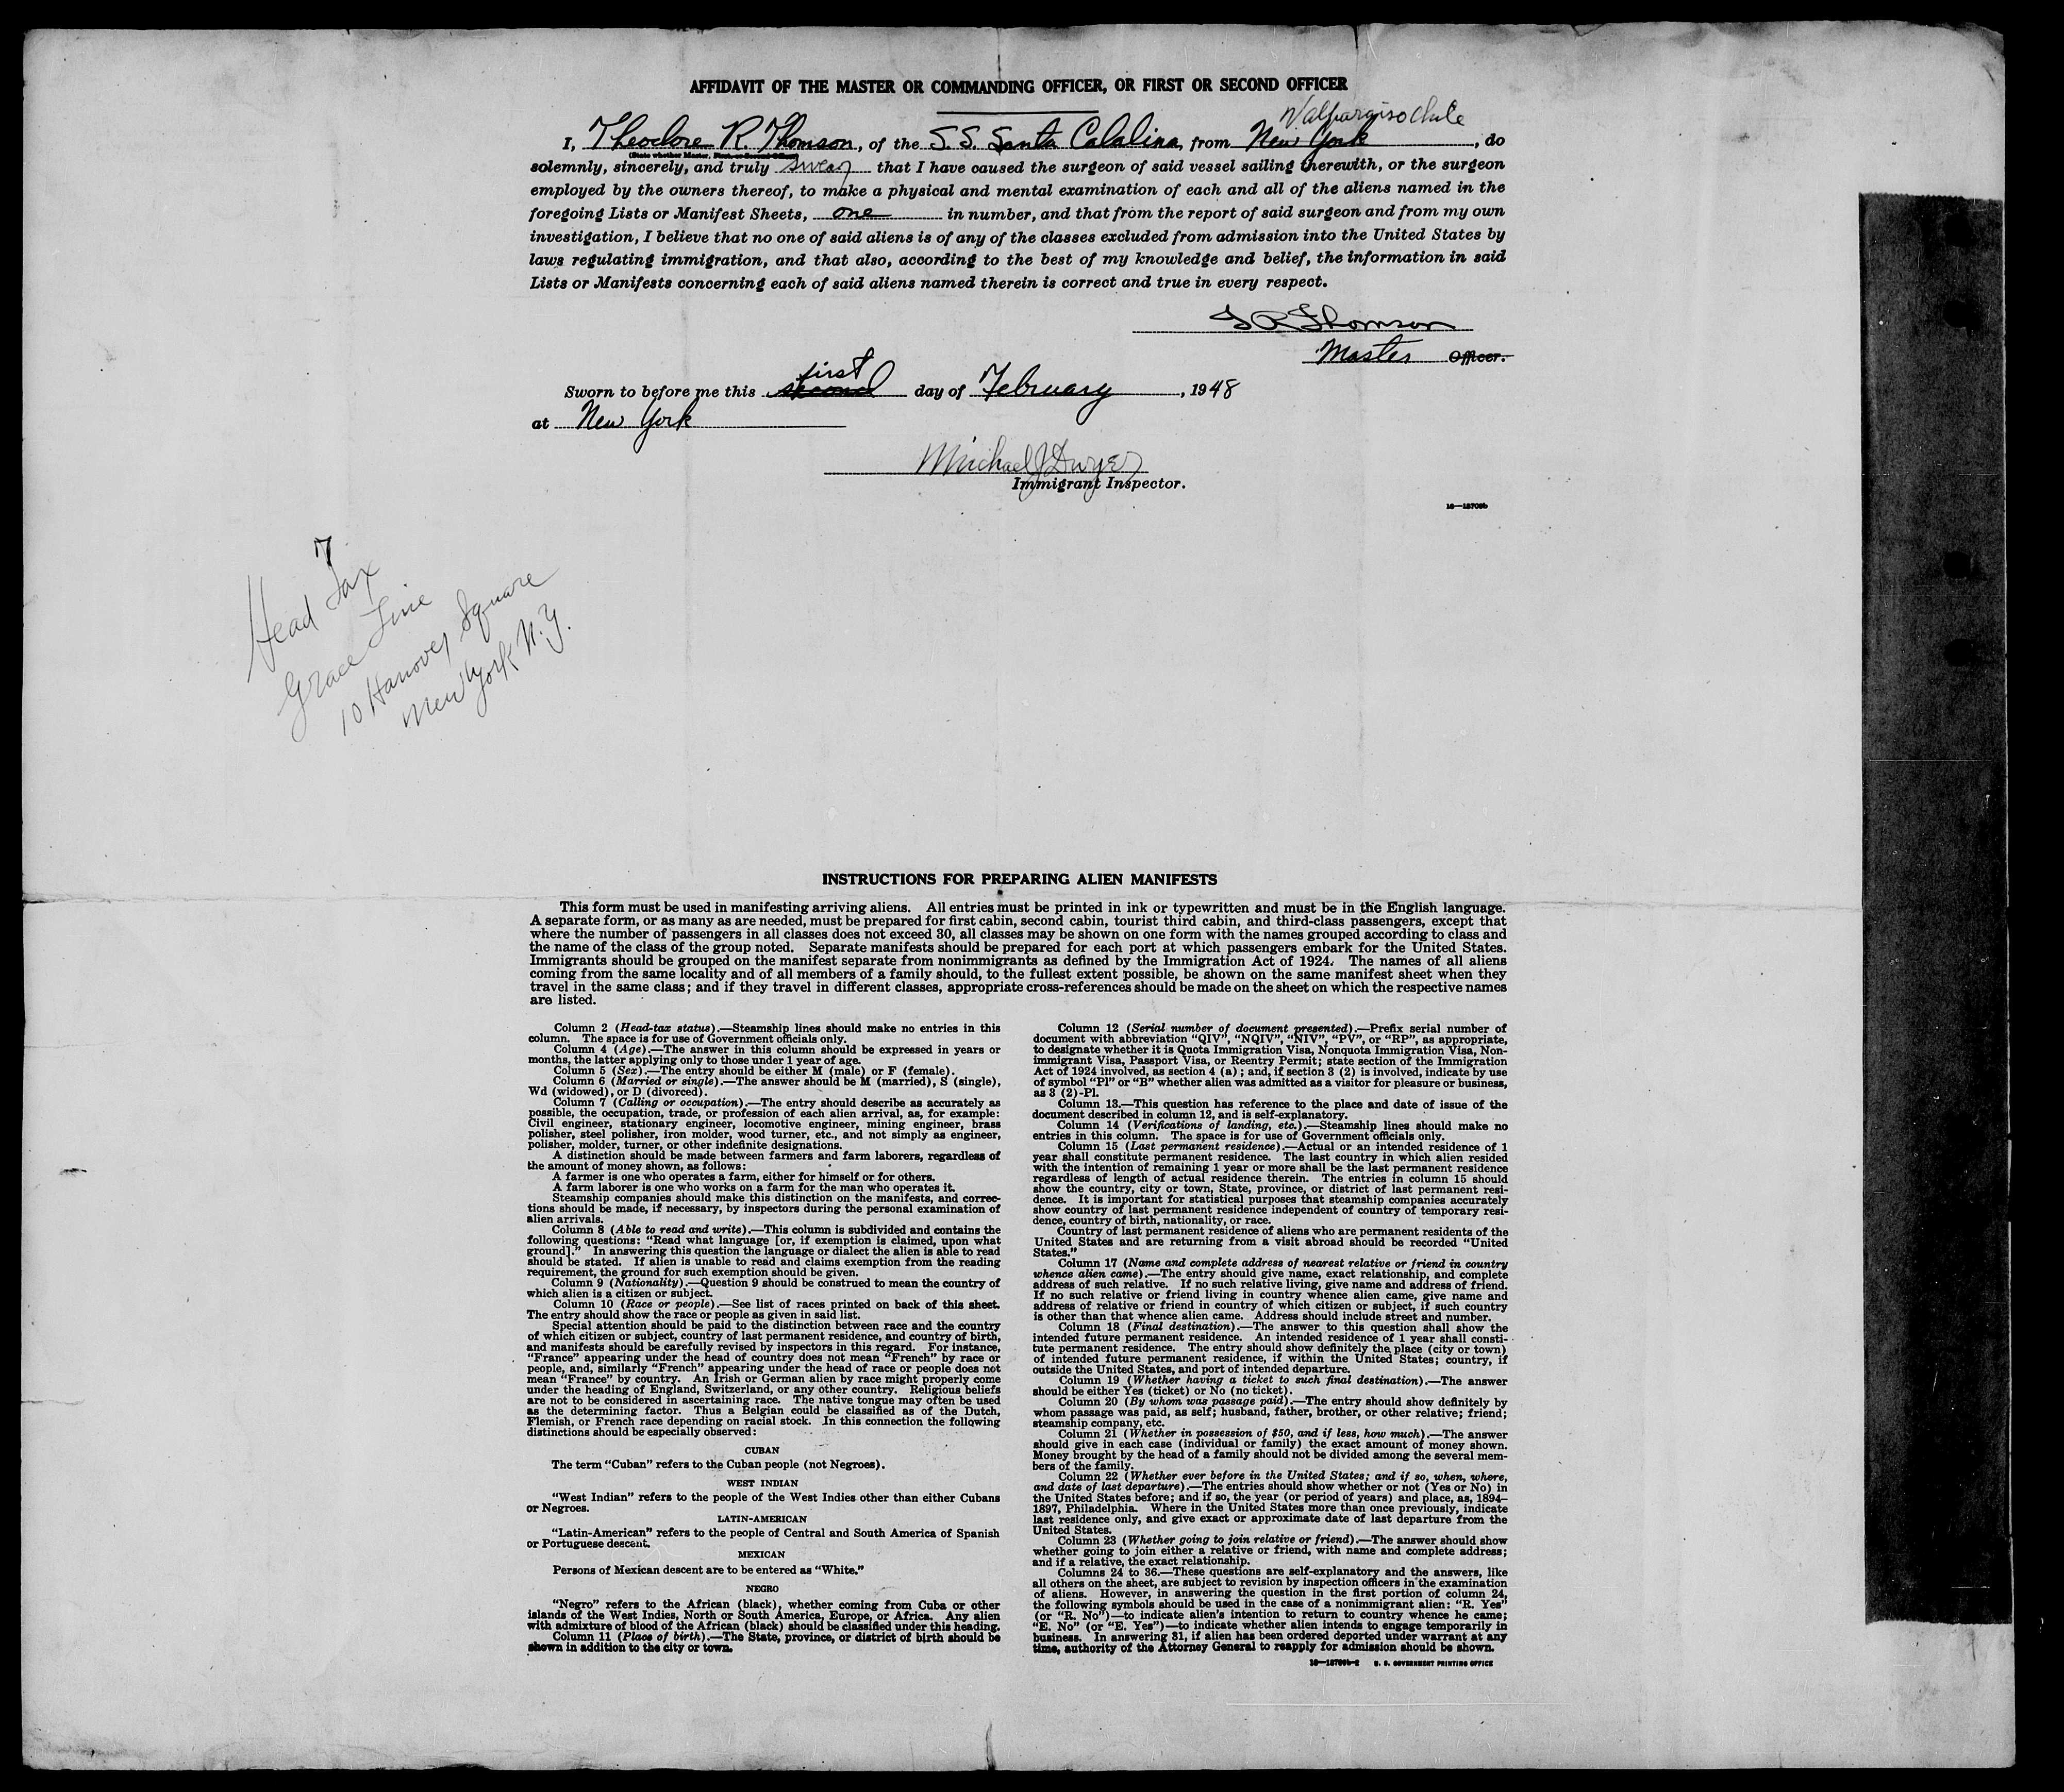 AFFIDAVIT OF THE MASTER OR COMMANDING OFFICER, OR FIRST OR SECOND OFFICER
Valparaiso Chile
I, Theodore R. Thomson, of the S.S. Santa Catalina, from New York, do
(State whether Master, First or Second Officer)
solemnly, sincerely, and truly swear that I have caused the surgeon of said vessel sailing therewith, or the surgeon
employed by the owners thereof, to make a physical and mental examination of each and all of the aliens named in the
foregoing Lists or Manifest Sheets, one in number, and that from the report of said surgeon and from my own
investigation, I believe that no one of said aliens is of any of the classes excluded from admission into the United States by
laws regulating immigration, and that also, according to the best of my knowledge and belief, the information in said
Lists or Manifests concerning each of said aliens named therein is correct and true in every respect.
T R Thomson
Master Officer.
first
Sworn to before me this second day of February, 1948
at New York
Michael J Dwyer
Immigrant Inspector.
Head Tax
Grace Line
10 Hanover Square
New York N.Y.
INSTRUCTIONS FOR PREPARING ALIEN MANIFESTS
This form must be used in manifesting arriving aliens. All entries must be printed in ink or typewritten and must be in the English language.
A separate form, or as many as are needed, must be prepared for first cabin, second cabin, tourist third cabin, and third-class passengers, except that
where the number of passengers in all classes does not exceed 30, all classes may be shown on one form with the names grouped according to class and
the name of the class of the group noted. Separate manifests should be prepared for each port at which passengers embark for the United States.
Immigrants should be grouped on the manifest separate from nonimmigrants as defined by the Immigration Act of 1924. The names of all aliens
coming from the same locality and of all members of a family should, to the fullest extent possible, be shown on the same manifest sheet when they
travel in the same class; and if they travel in different classes, appropriate cross-references should be made on the sheet on which the respective names
are listed.
Column 2 (Head-tax status).—Steamship lines should make no entries in this
column. The space is for use of Government officials only.
Column 4 (Age).—The answer in this column should be expressed in years or
months, the latter applying only to those under 1 year of age.
Column 5 (Sex).—The entry should be either M (male) or F (female).
Column 6 (Married or single).—The answer should be M (married), S (single),
Wd (widowed), or D (divorced).
Column 7 (Calling or occupation).—The entry should describe as accurately as
possible, the occupation, trade, or profession of each alien arrival, as, for example:
Civil engineer, stationary engineer, locomotive engineer, mining engineer, brass
polisher, steel polisher, iron molder, wood turner, etc., and not simply as engineer,
polisher, molder, turner, or other indefinite designations.
A distinction should be made between farmers and farm laborers, regardless of
the amount of money shown, as follows:
A farmer is one who operates a farm, either for himself or for others.
A farm laborer is one who works on a farm for the man who operates it.
Steamship companies should make this distinction on the manifests, and correc-
tions should be made, if necessary, by inspectors during the personal examination of
alien arrivals.
Column 8 (Able to read and write).—This column is subdivided and contains the
following questions: “Read what language [or, if exemption is claimed, upon what
ground].” In answering this question the language or dialect the alien is able to read
should be stated. If alien is unable to read and claims exemption from the reading
requirement, the ground for such exemption should be given.
Column 9 (Nationality).—Question 9 should be construed to mean the country of
which alien is a citizen or subject.
Column 10 (Race or people).—See list of races printed on back of this sheet.
The entry should show the race or people as given in said list.
Special attention should be paid to the distinction between race and the country
of which citizen or subject, country of last permanent residence, and country of birth,
and manifests should be carefully revised by inspectors in this regard. For instance,
“France” appearing under the head of country does not mean “French” by race or
people, and, similarly “French” appearing under the head of race or people does not
mean “France” by country. An Irish or German alien by race might properly come
under the heading of England, Switzerland, or any other country. Religious beliefs
are not to be considered in ascertaining race. The native tongue may often be used
as the determining factor. Thus a Belgian could be classified as of the Dutch,
Flemish, or French race depending on racial stock. In this connection the following
distinctions should be especially observed:
CUBAN
The term “Cuban” refers to the Cuban people (not Negroes).
WEST INDIAN
“West Indian” refers to the people of the West Indies other than either Cubans
or Negroes.
LATIN-AMERICAN
“Latin-American” refers to the people of Central and South America of Spanish
or Portuguese descent.
MEXICAN
Persons of Mexican descent are to be entered as “White.”
NEGRO
“Negro” refers to the African (black), whether coming from Cuba or other
islands of the West Indies, North or South America, Europe, or Africa. Any alien
with admixture of blood of the African (black) should be classified under this heading.
Column 11 (Place of birth).—The State, province, or district of birth should be
shown in addition to the city or town.
Column 12 (Serial number of document presented).—Prefix serial number of
document with abbreviation “QIV”, “NQIV”, “NIV”, “PV”, or “RP”, as appropriate,
to designate whether it is Quota Immigration Visa, Nonquota Immigration Visa, Non-
immigrant Visa, Passport Visa, or Reentry Permit; state section of the Immigration
Act of 1924 involved, as section 4 (a); and, if section 3 (2) is involved, indicate by use
of symbol “Pl” or “B” whether alien was admitted as a visitor for pleasure or business,
as 3 (2)-Pl.
Column 13.—This question has reference to the place and date of issue of the
document described in column 12, and is self-explanatory.
Column 14 (Verifications of landing, etc.).—Steamship lines should make no
entries in this column. The space is for use of Government officials only.
Column 15 (Last permanent residence).—Actual or an intended residence of 1
year shall constitute permanent residence. The last country in which alien resided
with the intention of remaining 1 year or more shall be the last permanent residence
regardless of length of actual residence therein. The entries in column 15 should
show the country, city or town, State, province, or district of last permanent resi-
dence. It is important for statistical purposes that steamship companies accurately
show country of last permanent residence independent of country of temporary resi-
dence, country of birth, nationality, or race.
Country of last permanent residence of aliens who are permanent residents of the
United States and are returning from a visit abroad should be recorded “United
States.”
Column 17 (Name and complete address of nearest relative or friend in country
whence alien came).—The entry should give name, exact relationship, and complete
address of such relative. If no such relative living, give name and address of friend.
If no such relative or friend living in country whence alien came, give name and
address of relative or friend in country of which citizen or subject, if such country
is other than that whence alien came. Address should include street and number.
Column 18 (Final destination).—The answer to this question shall show the
intended future permanent residence. An intended residence of 1 year shall consti-
tute permanent residence. The entry should show definitely the place (city or town)
of intended future permanent residence, if within the United States; country, if
outside the United States, and port of intended departure.
Column 19 (Whether having a ticket to such final destination).—The answer
should be either Yes (ticket) or No (no ticket).
Column 20 (By whom was passage paid).—The entry should show definitely by
whom passage was paid, as self; husband, father, brother, or other relative; friend;
steamship company, etc.
Column 21 (Whether in possession of $50, and if less, how much).—The answer
should give in each case (individual or family) the exact amount of money shown.
Money brought by the head of a family should not be divided among the several mem-
bers of the family.
Column 22 (Whether ever before in the United States; and if so, when, where,
and date of last departure).—The entries should show whether or not (Yes or No) in
the United States before; and if so, the year (or period of years) and place, as, 1894–
1897, Philadelphia. Where in the United States more than once previously, indicate
last residence only, and give exact or approximate date of last departure from the
United States.
Column 23 (Whether going to join relative or friend).—The answer should show
whether going to join either a relative or friend, with name and complete address;
and if a relative, the exact relationship.
Columns 24 to 36.—These questions are self-explanatory and the answers, like
all others on the sheet, are subject to revision by inspection officers in the examination
of aliens. However, in answering the question in the first portion of column 24,
the following symbols should be used in the case of a nonimmigrant alien: “R. Yes”
(or “R. No”)—to indicate alien's intention to return to country whence he came;
“E. No” (or “E. Yes”)—to indicate whether alien intends to engage temporarily in
business. In answering 31, if alien has been ordered deported under warrant at any
time, authority of the Attorney General to reapply for admission should be shown.
U. S. GOVERNMENT PRINTING OFFICE